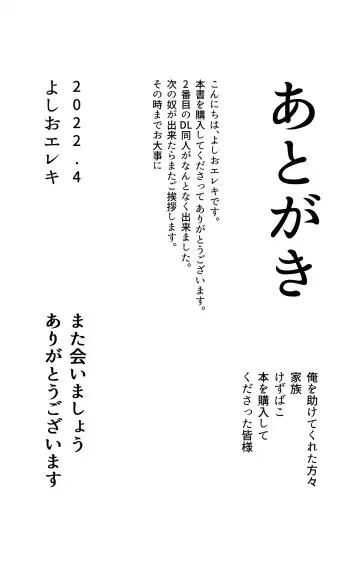 あとがき
俺を助けてくれた方々
家族
けずばこ
本を購入して
くださった皆様
こんにちは、よしおエレキです。
本書を購入してくださってありがとうございます。
2番目のDL同人がなんとなく出来ました。
次の奴が出来たらまたご挨拶します。
その時までお大事に
また会いましょう
ありがとうございます
2022.4
よしおエレキ